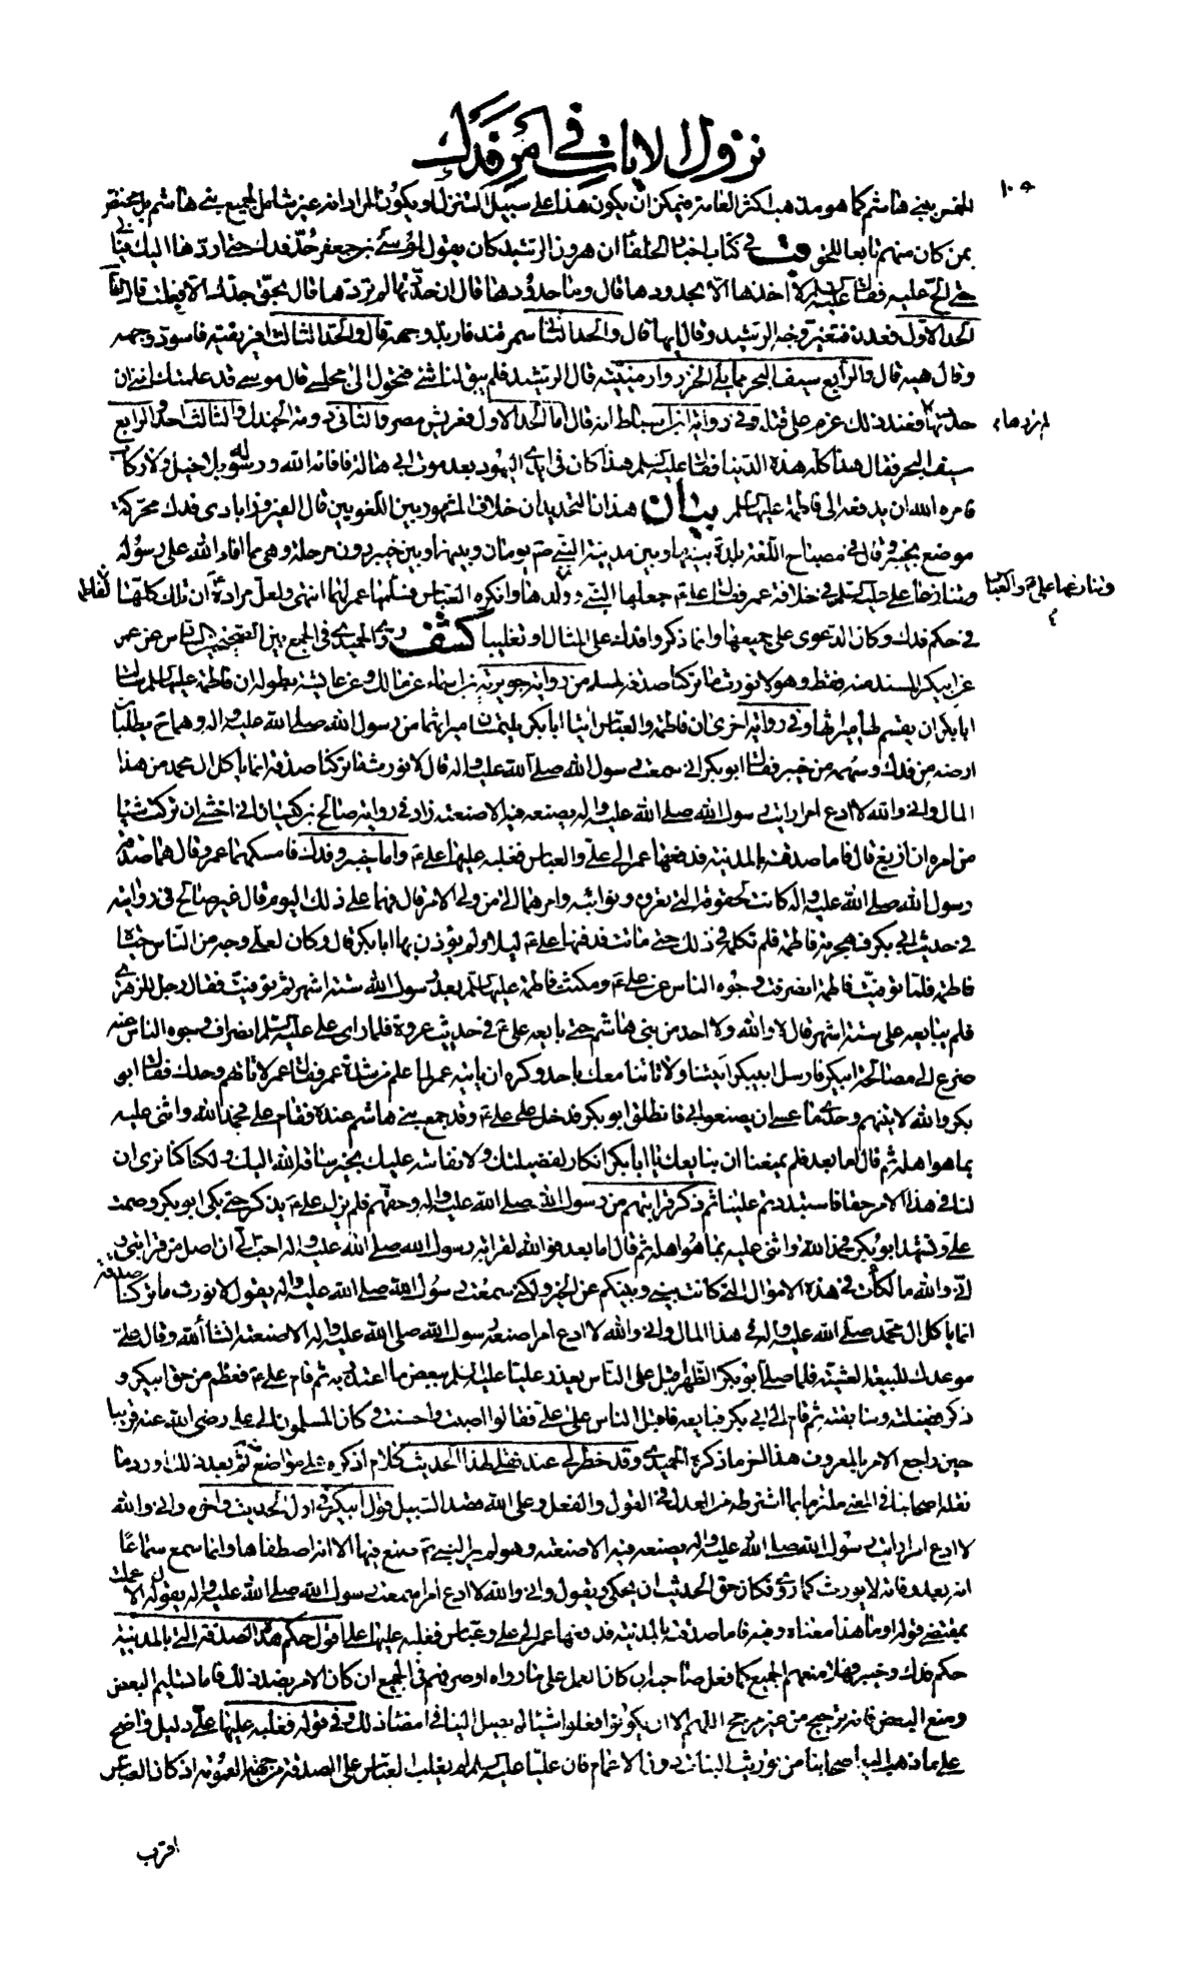 نزول الايات في امر فدك
١٠٥
الخمس ببني هاشم كما هو مذهب اكثر العامة فيمكن ان يكون هذا على سبيل التنزل او يكون المراد انه غير شامل لجميع بني هاشم بل مختص
بمن كان منهم تابعا للحق قب في كتاب اخبار الخلفا ان هرون الرشيد كان يقول لموسى بن جعفر خذ فدك حتى اردها اليك فيابى
حتى الح عليه فقال عليه السلم لا اخذها الا بحدودها قال وما حدودها قال ان حددتها لم تردها قال بحق جدك الا فعلت قال اما
الحد الاول فعدن فتغير وجه الرشيد وقال ايها قال والحد الثاني سمرقند فاربد وجهه قال والحد الثالث افريقية فاسود وجهه
وقال هيه قال والرابع سيف البحر مما يلي الخزر وارمينية قال الرشيد فلم يبق لنا شيء فتحول الى مجلسي قال موسى قد علمتك انني ان
حددتها فعند ذلك عزم على قتله وفي رواية ابن اسباط انه قال اما الحد الاول فعريش مصر والثاني دومة الجندل والثالث احد والرابع
لم تردها
سيف البحر فقال هذا كله هذه الدنيا فقال عليه السلم هذا كان في ايدي اليهود بعد موت ابي هالة فافائه الله ورسوله بلا خيل ولا ركاب
فامره الله ان يدفعه الى فاطمة عليها السلم بيان هذان التحديدان خلاف المشهور بين اللغويين قال الفيروزابادى فدك محركة
موضع بخيبر وقال في مصباح اللغة بلدة بينها وبين مدينة النبي ص يومان وبينها وبين خيبر دون مرحلة وهي مما افاء الله على رسوله
وتنازعها علي ع والعباس
وتنازعها علي عليه السلم في خلافة عمر فقال علي ع جعلها النبي ص لفاطمة وولدها وانكره العباس فسلمها عمر لهما انتهى ولعل مراده ع ان تلك كلها
في حكم فدك وكان الدعوى على جميعها وانما ذكروا فدك على المثال او تغليبا كشف روى الحميدي في الجمع بين الصحيحين السادس عن عمر
عن ابي بكر المسند منه فقط وهو لا نورث ما تركنا صدقة لمسلم من رواية جويرية بن اسماء عن مالك وعن عايشة بطوله ان فاطمة عليها السلم سالت
ابا بكر ان يقسم لها ميراثها وفي رواية اخرى ان فاطمة والعباس اتيا ابا بكر يلتمسان ميراثهما من رسول الله صلى الله عليه واله وهما ح يطلبان
ارضه من فدك وسهمه من خيبر فقال ابو بكر اني سمعت رسول الله صلى الله عليه واله قال لا نورث ما تركنا صدقة انما ياكل ال محمد من هذا
المال واني والله لا ادع امرا رايت رسول الله صلى الله عليه واله يصنعه فيه الا صنعته زاد في رواية صالح بن كيسان اني اخشى ان تركت شيئا
من امره ان ازيغ قال فاما صدقته بالمدينة فدفعها عمر الى علي والعباس فغلبه عليها علي ع واما خيبر وفدك فامسكهما عمر وقال هما صدقة
رسول الله صلى الله عليه واله كانت لحقوقه التي تعروه ونوائبه وامرهما الى من ولي الامر قال فهما على ذلك اليوم قال غير صالح في روايته
في حديث ابي بكر فهجرته فاطمة فلم تكلمه في ذلك حتى ماتت فدفنها علي ع ليلا ولم يؤذن بها ابا بكر قال وكان لعلي وجه من الناس حياة
فاطمة فلما توفيت فاطمة انصرفت وجوه الناس عن علي ع ومكثت فاطمة عليها السلم بعد رسول الله ستة اشهر ثم توفيت فقال رجل للزهري
فلم يبايعه علي ستة اشهر قال لا والله ولا احد من بني هاشم حتى بايعه علي ع في حديث عروة فلما راى علي عليه السلم انصراف وجوه الناس عنه
ضرع الى مصالحة ابي بكر فارسل الى ابي بكر ايتنا ولا تاتنا معك باحد وكره ان ياتيه عمر لما علم من شدة عمر فقال عمر لا تاتهم وحدك فقال ابو
بكر والله لاتينهم وحدي ما عسى ان يصنعوا بي فانطلق ابو بكر فدخل على علي ع وقد جمع بني هاشم عنده فقام علي فحمد الله واثنى عليه
بما هو اهله ثم قال اما بعد فلم يمنعنا ان نبايعك يا ابا بكر انكار لفضيلتك ولا نفاسة عليك بخير ساقه الله اليك ولكنا كنا نرى ان
لنا في هذا الامر حقا فاستبددتم علينا ثم ذكر قرابتهم من رسول الله صلى الله عليه واله وحقهم فلم يزل علي ع يذكر حتى بكى ابو بكر وصمت
علي وتشهد ابو بكر فحمد الله واثنى عليه بما هو اهله ثم قال اما بعد فو الله لقرابة رسول الله صلى الله عليه واله احب الي ان اصل من قرابتي
اني والله ما لكات في هذه الاموال التي كانت بيني وبينكم عن الخير ولكني سمعت رسول الله صلى الله عليه واله يقول لا نورث ما تركنا صدقة
انما ياكل ال محمد صلى الله عليه واله في هذا المال واني والله لا ادع امرا صنعه رسول الله صلى الله عليه واله الا صنعته انشاء الله وقال علي
موعدك للبيعة العشية فلما صلى ابو بكر الظهر اقبل على الناس يعذر عليا عليه السلم ببعض ما اعتذر به ثم قام علي ع فعظم من حق ابي بكر و
ذكر فضيلته وسابقته ثم قام الى ابي بكر فبايعه فاقبل الناس على علي فقالوا اصبت واحسنت وكان المسلمون الى علي رضى الله عنه قريبا
حين راجع الامر بالمعروف هذا اخر ما ذكره الحميدي وقد خطر لي عند نقلي لهذا الحديث كلام اذكره على مواضع منه ثم بعد ذلك اورد ما
نقله اصحابنا في المعنى ملتزما بما اشترطه من العدل في القول والفعل وعلى الله قصد السبيل قول ابي بكر في اول الحديث واخره واني والله
لا ادع امرا رايت رسول الله صلى الله عليه واله يصنعه فيه الا صنعته وهو لم ير النبي ص صنع فيها الا انه اصطفاها وانما سمع سماعا
انه بعد وفاته لا يورث كما روى فكان حق الحديث ان يحكي ويقول واني والله لا ادع امرا سمعت رسول الله صلى الله عليه واله يقوله الا عملت
بمقتضى قوله او ما هذا معناه وفيه فاما صدقته بالمدينة فدفعها عمر الى علي وعباس فغلبه عليها علي اقول حكم هذه الصدقة التي بالمدينة
حكم فدك وخيبر فهلا منعهم الجميع كما فعل صاحبه ان كان العمل على ما رواه او صرفهم في الجميع ان كان الامر بضد ذلك فاما تسليم البعض
ومنع البعض فانه ترجيح من غير مرجح اللهم الا ان يكونوا فعلوا شيئا لم يصل الينا في امضاء ذلك وفي قوله فغلبه عليها علي دليل واضح
على ما ذهب اليه اصحابنا من توريث البنات دون الاعمام فان عليا عليه السلم لم يغلب العباس على الصدقة من جهة العمومة اذ كان العباس
اقرب